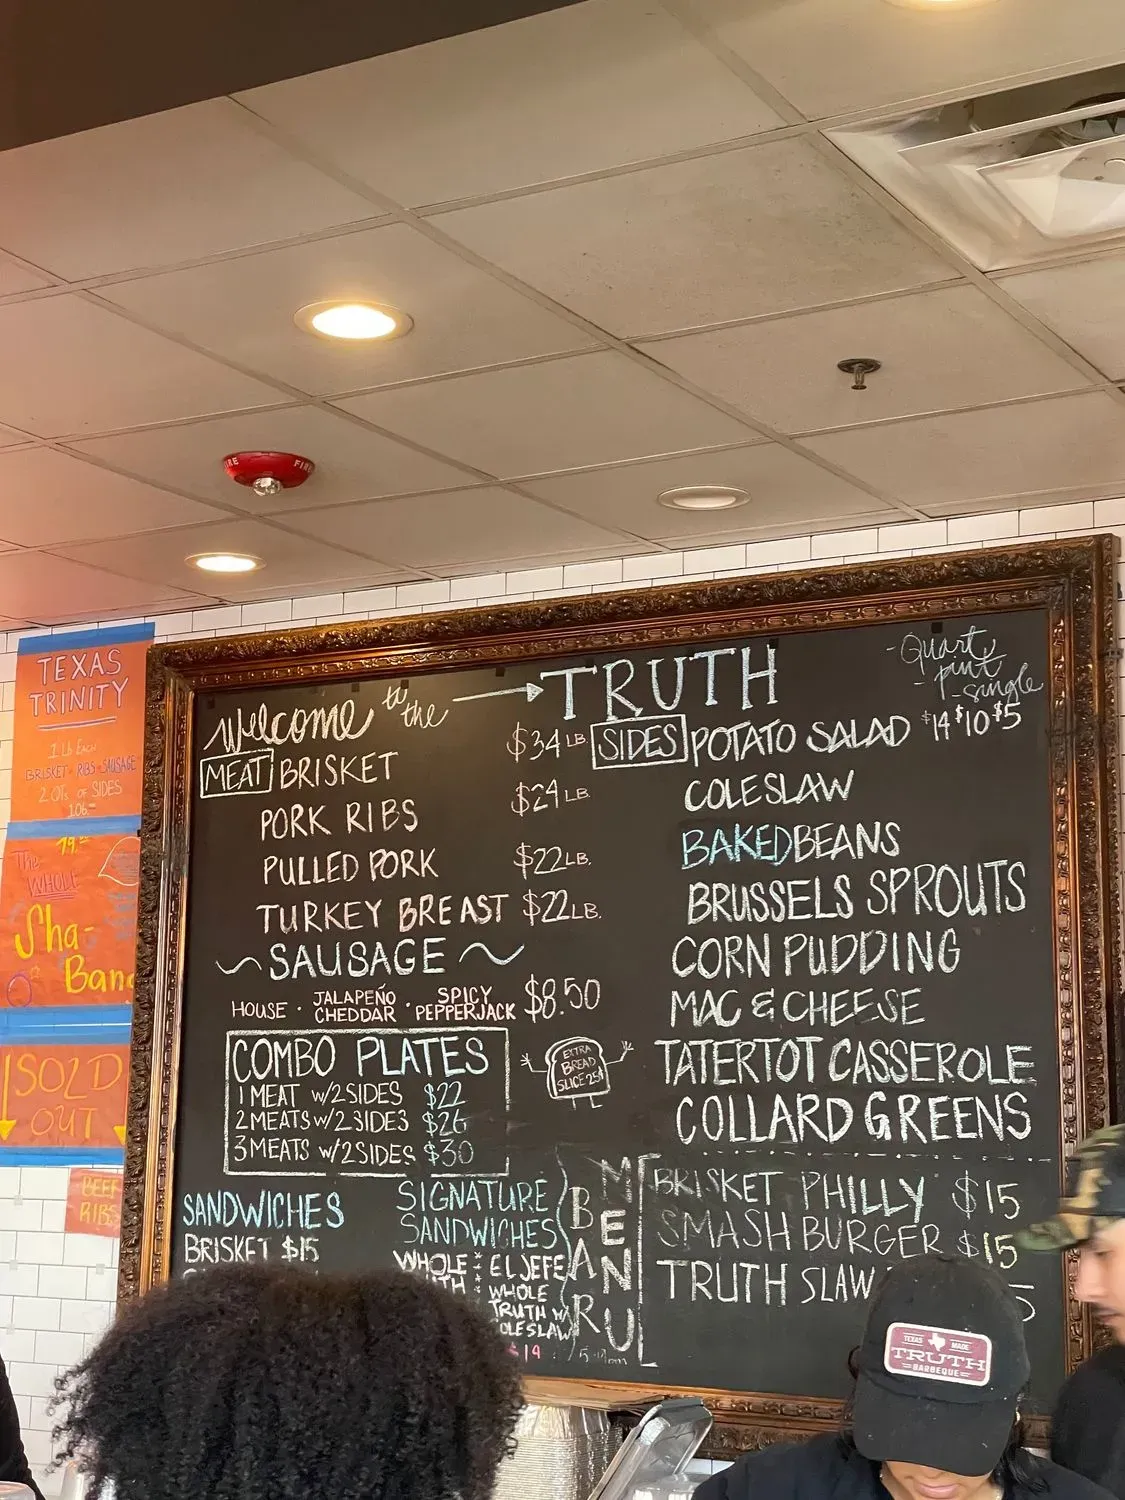 TEXAS
TRINITY
1 Lb EACH
BRISKET · RIBS · SAUSAGE
2 QTs OF SIDES
106.
19.
The
WHOLE
Sha-
Bang
SOLD
OUT
BEEF
RIBS
FIRE
Welcome to the → TRUTH
MEAT BRISKET $34 LB.
PORK RIBS $24 LB.
PULLED PORK $22 LB.
TURKEY BREAST $22 LB.
~ SAUSAGE ~
HOUSE · JALAPEÑO CHEDDAR · SPICY PEPPERJACK $8.50
COMBO PLATES
1 MEAT w/2 SIDES $22
2 MEATS w/2 SIDES $26
3 MEATS w/2 SIDES $30
EXTRA
BREAD
SLICE 25¢
SANDWICHES
BRISKET $15
SIGNATURE
SANDWICHES
WHOLE
EL JEFE
WHOLE
TRUTH W/
COLESLAW
$19
- Quart
- pint
- single
SIDES POTATO SALAD $14 $10 $5
COLESLAW
BAKED BEANS
BRUSSELS SPROUTS
CORN PUDDING
MAC & CHEESE
TATERTOT CASSEROLE
COLLARD GREENS
BAR
MENU
BRISKET PHILLY $15
SMASH BURGER $15
TRUTH SLAW
TEXAS MADE
TRUTH
BARBEQUE